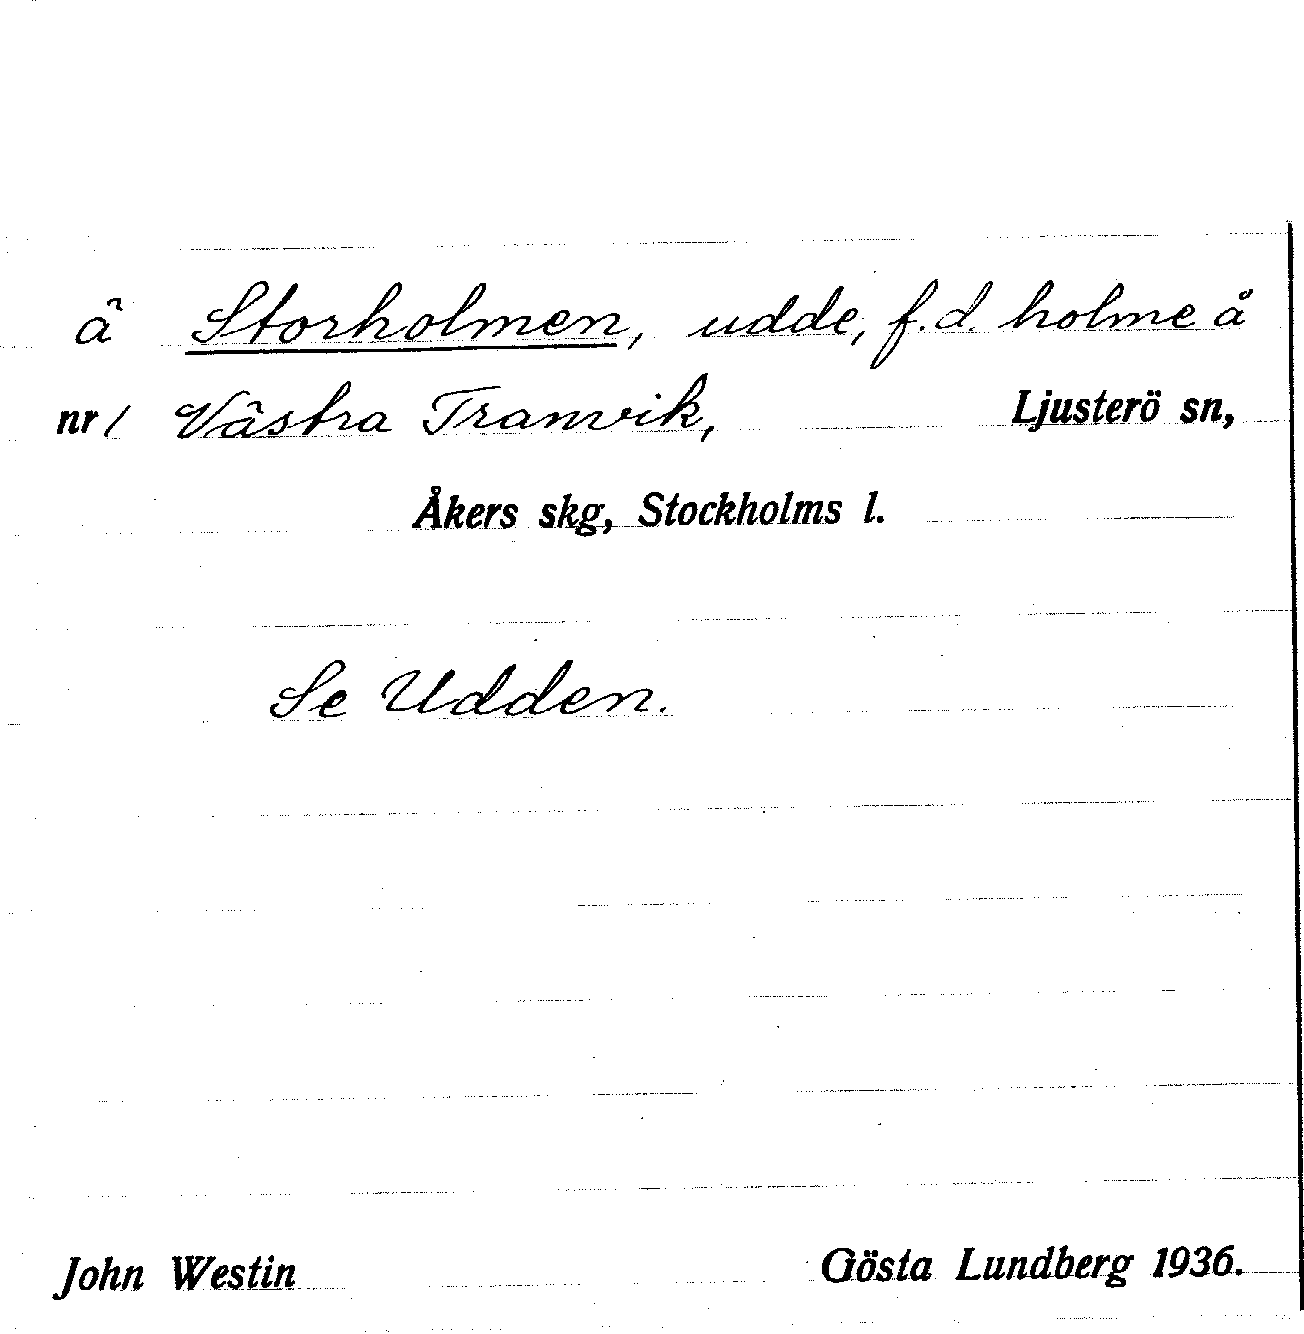 ä Storholmen, udde, f.d. holme å
nr 1 Västra Tranvik, Ljusterö sn,
Åkers skg, Stockholms l.
Se Udden.
John Westin Gösta Lundberg 1936.